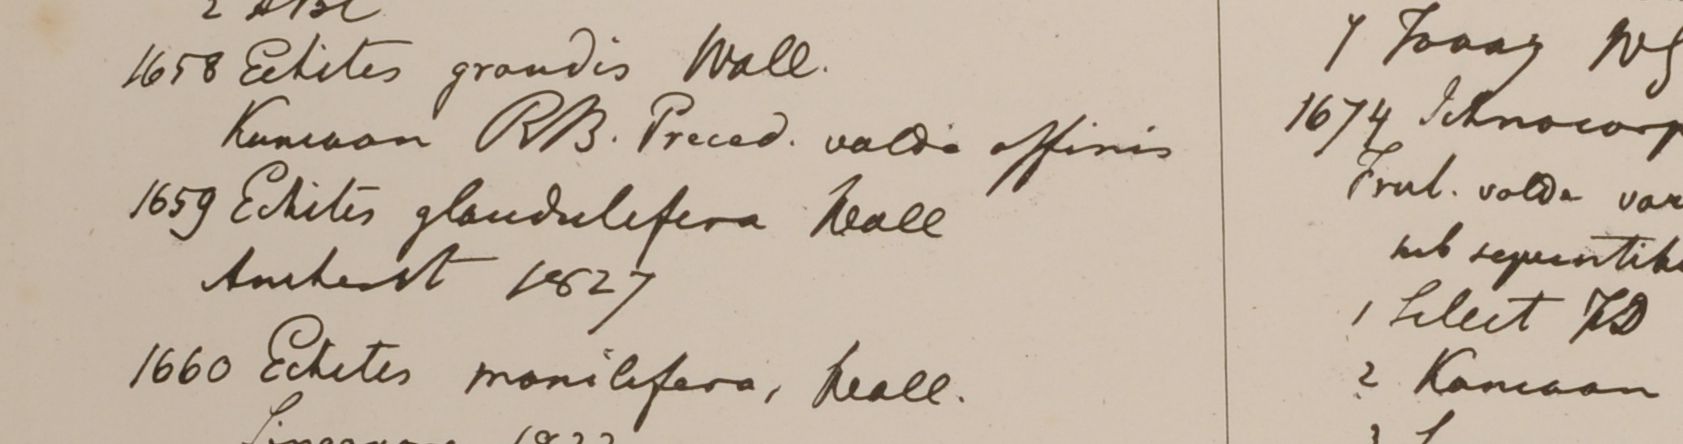 1658 Echites grandis Wall.
Kumaon RB. Preced. valde affinis
1659 Echites glandulifera Wall
Amherst 1827
1660 Echites monilifera, Wall.
Singapore 1822
7 Tavoy WG
1674 Ichnocarp
Frut. valde var
sub sequentib
1 Silhet FD
2 Kamaon
3 S